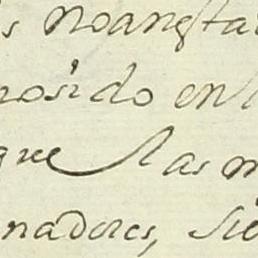 s noansta
nosido en l
que las m
nadores, sie